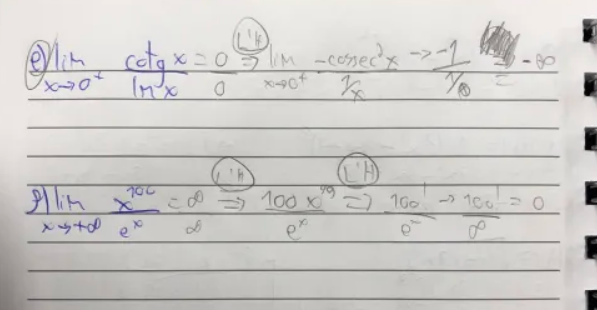 e) lim x→0⁺ cotg x / ln x = 0/0 L'H ⇒ lim x→0⁺ -cossec²x / 1/x → -1 / 1/0 = -∞
f) lim x→+∞ x¹⁰⁰ / eˣ = ∞/∞ L'H ⇒ 100 x⁹⁹ / eˣ L'H ⇒ 100! / eˣ → 100! / ∞ = 0